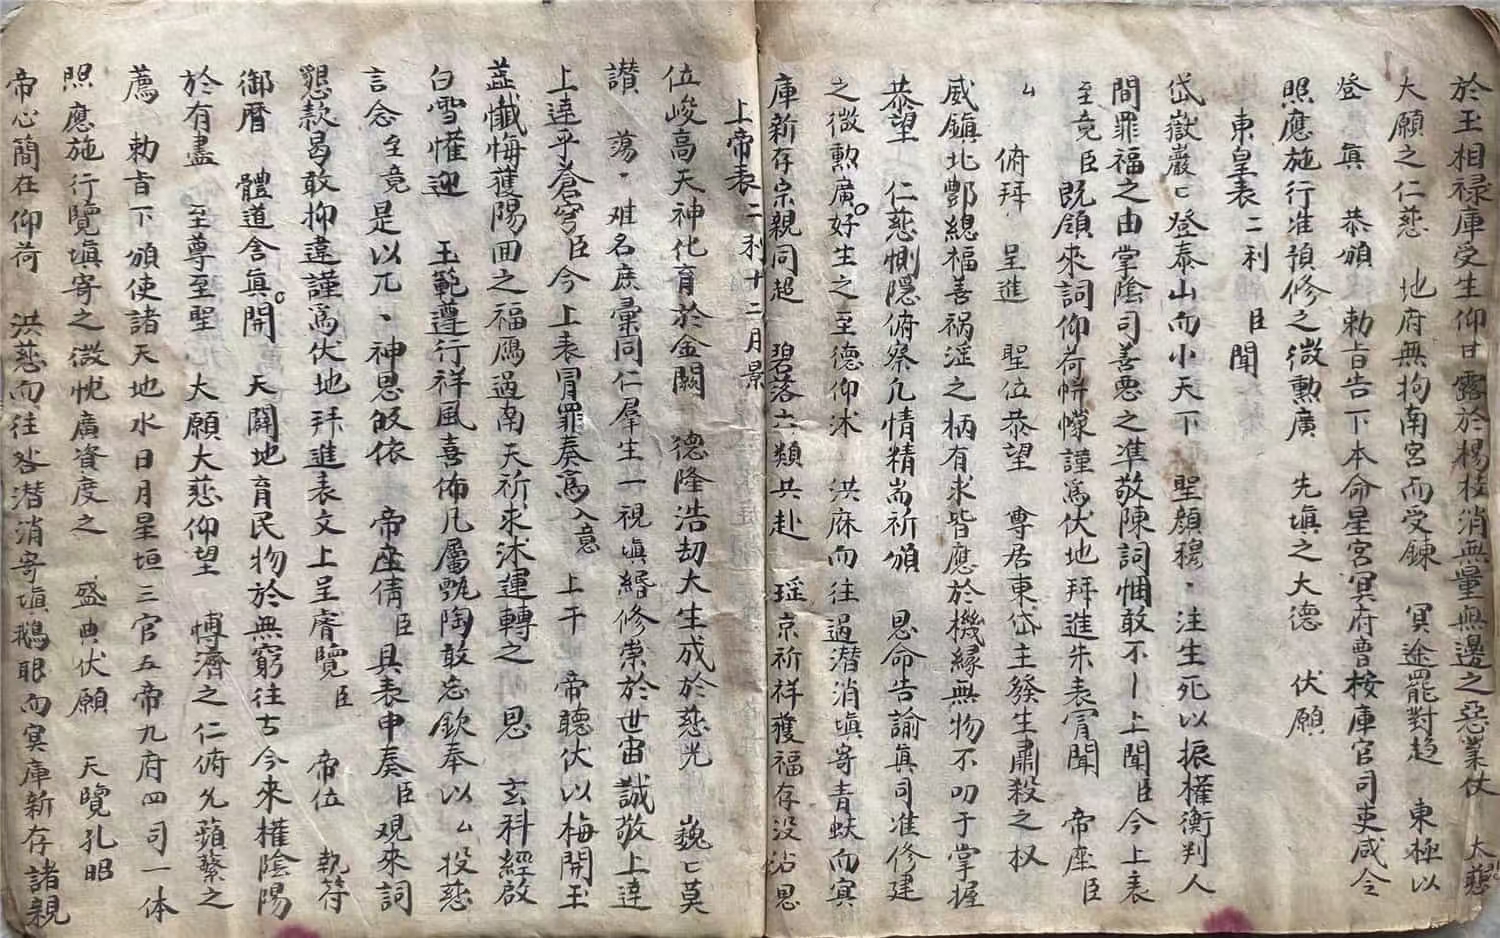 於玉相禄庫受生仰日露於楊枝消無量無邊之惡業仗　大慈
大願之仁慈　地府無拘南宮而受鍊　冥途罷對趋　東極以
登眞　恭頒　勅旨告下本命星宮冥府曹桉庫官司吏咸令
照應施行准預修之微勲廣　先填之大德　伏願
東皇表二利　臣聞
岱嶽巖匕登泰山而小天下　聖顔穆〻注生死以振權衡判人
間罪福之由掌陰司善悪之凖敬陳詞悃敢不丨上聞臣今上表
至竟臣既領來詞仰荷帡幪謹爲伏地拜進朱表冐聞　帝座臣
厶　俯拜　呈進　聖位恭望　尊居東岱主發生肅殺之权
威鎮北酆總福善祸淫之柄有求皆應於機縁無物不叨于掌握
恭望　仁慈惻隠俯察凢情精耑祈頒　恩命告諭眞司准修建
之微勲廣好生之至德仰沭　洪庥而往過潜消填寄青蚨而冥
庫新存宗親同超　碧落六類共赴　瑶京祈祥獲福存没沾恩
上帝表二利十二月景
位峻高天神化育於金闕　德隆浩劫大生成於慈光　巍匕莫
讃　蕩〻难名庶彙同仁羣生一視填緡修崇於世宙誠敬上達
上達乎蒼穹臣今上表冐罪奏爲入意　上干　帝聽伏以梅開玉
蕋懴悔獲陽回之福鴈過南天祈求沭運轉之　恩　玄科經啟
白雪懽迎　玉範遵行祥風喜佈凡屬甄陶敢忘欽奉以厶投慈
言念至竟是以兀〻神恩皈依　帝座倩臣具表申奏臣观來詞
懇款曷敢抑違謹爲伏地拜進表文上呈睿覽臣　帝位　執符
御曆　體道含眞開　天闢地育民物於無窮往古今來權陰陽
於有盡　至尊至聖　大願大慈仰望　博濟之仁俯允蘋蘩之
薦　勅旨下頒使諸天地水日月星垣三官五帝九府四司一体
照應施行覽填寄之微忱廣資度之　盛典伏願　天覽孔昭
帝心簡在仰荷　洪慈而往咎潜消寄填鵝眼而冥庫新存諸親